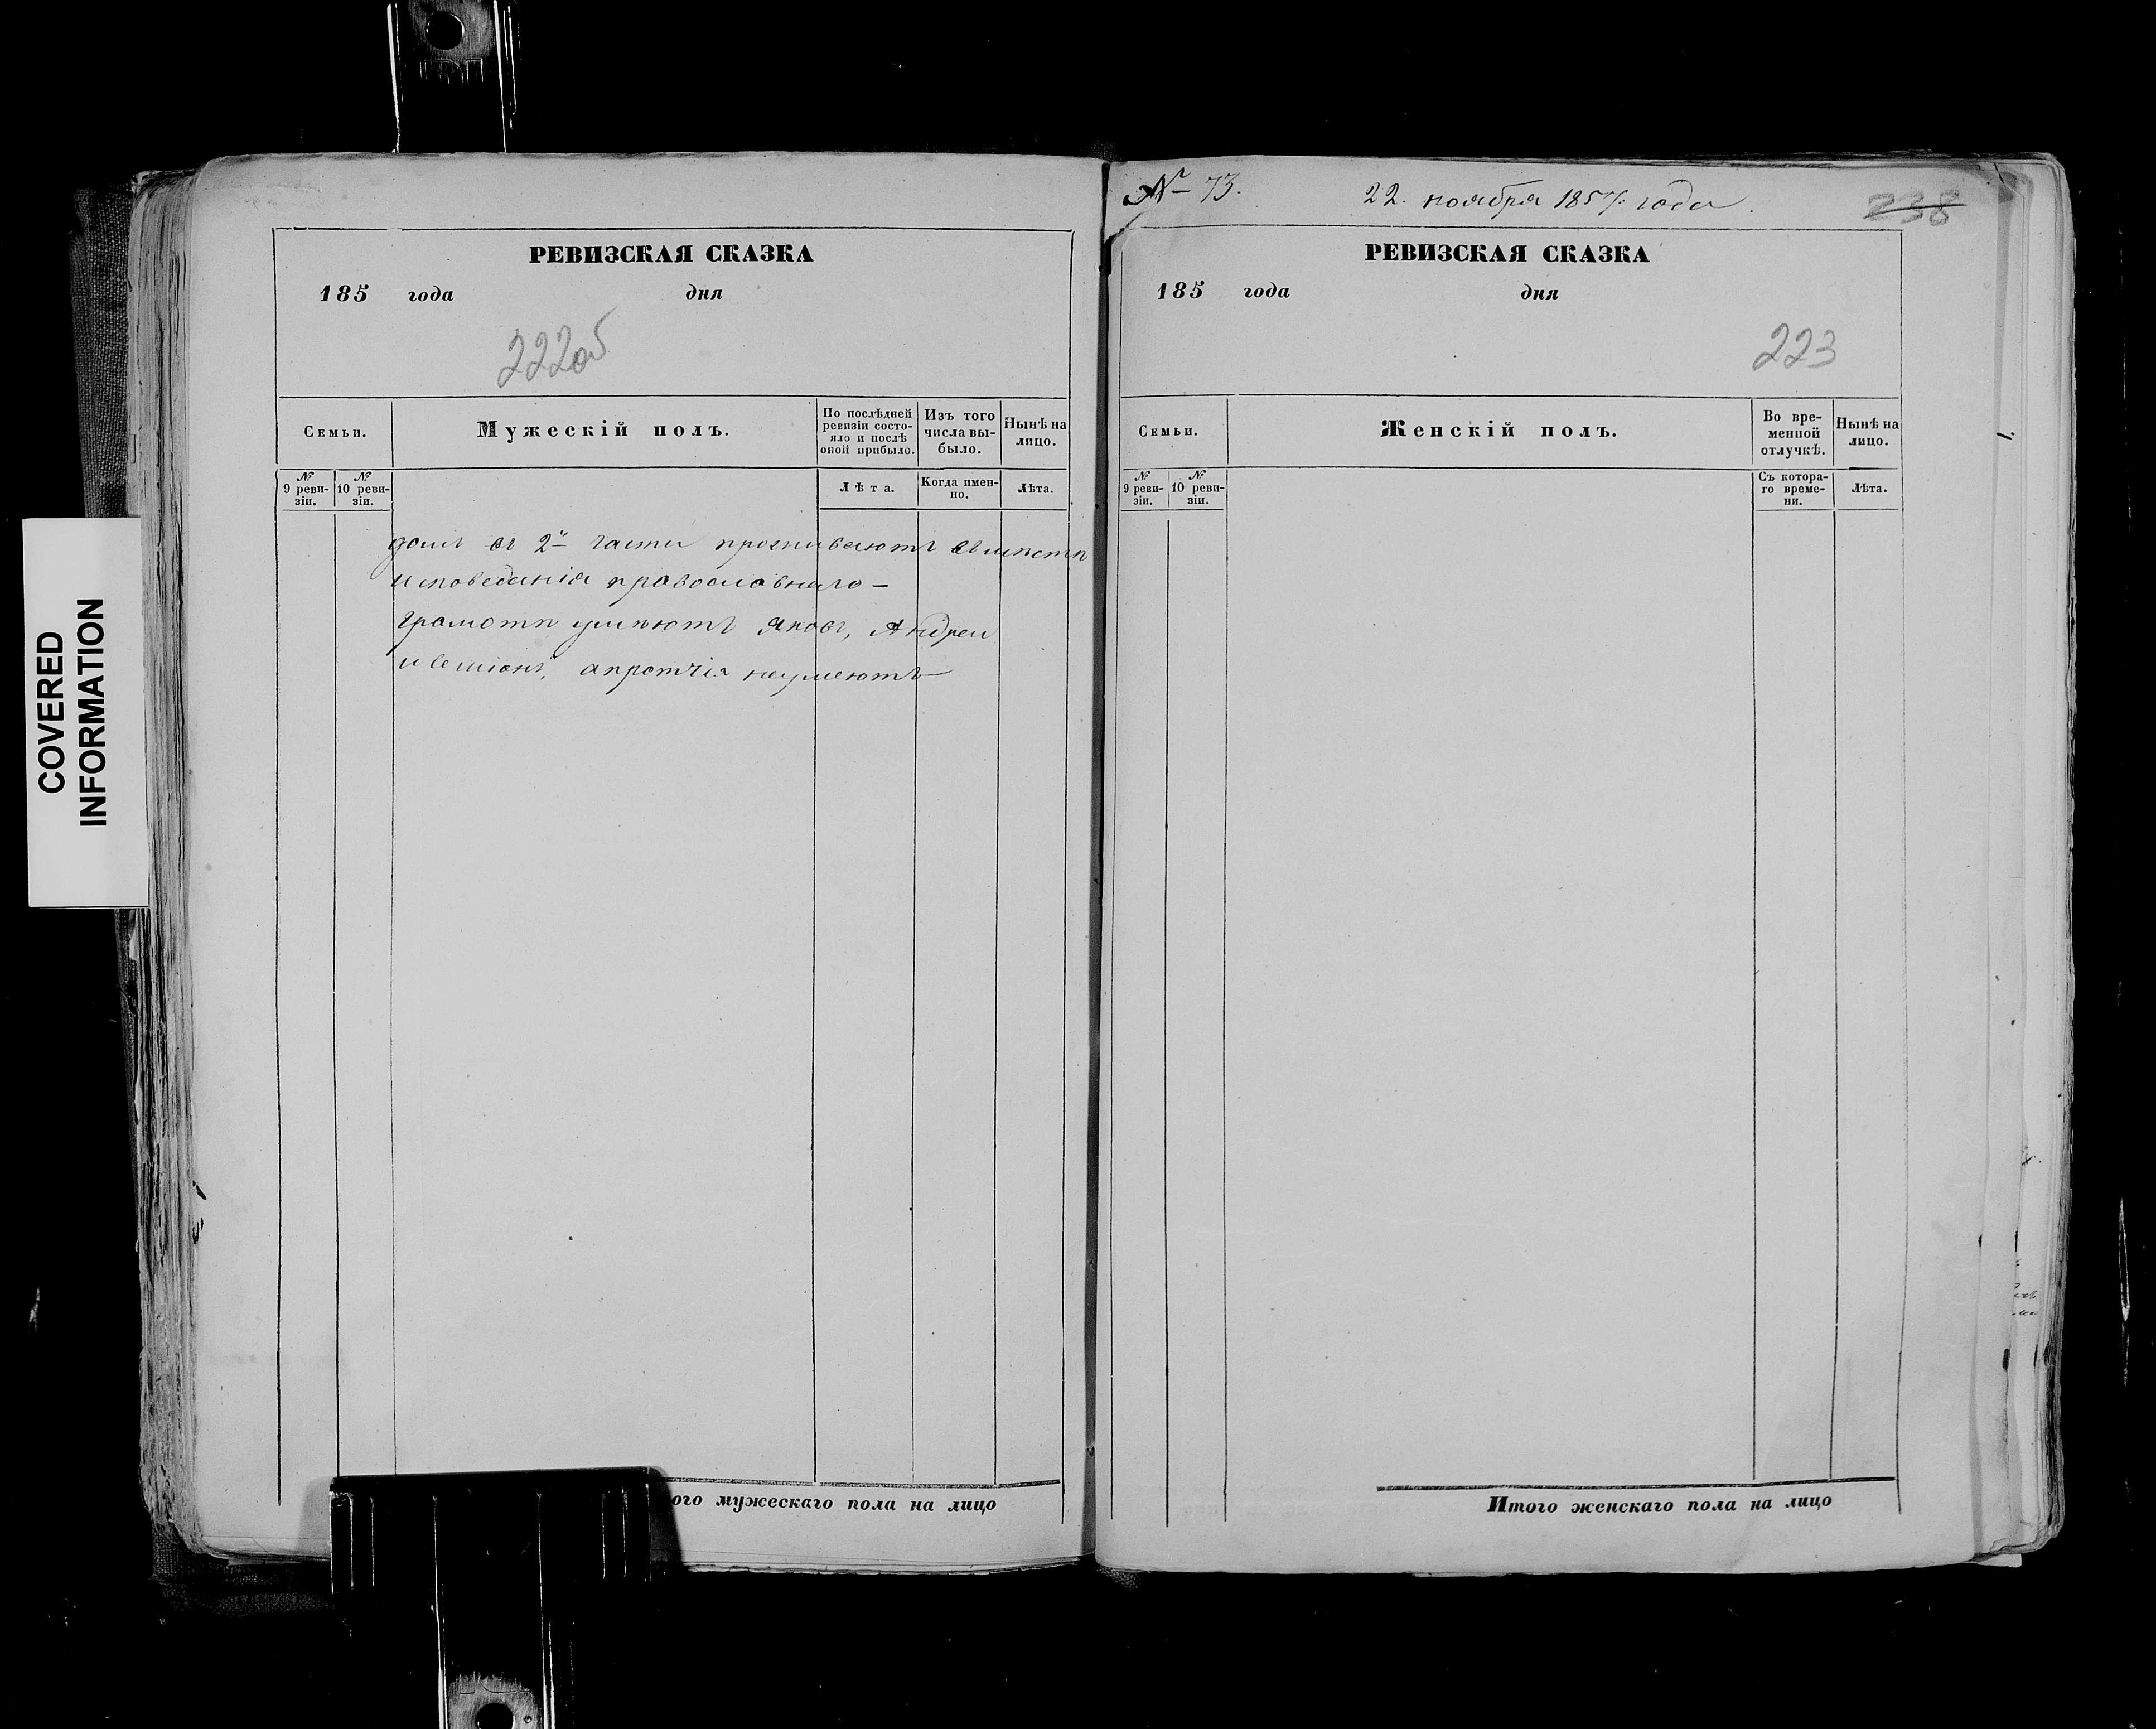 COVERED
INFORMATION
РЕВИЗСКАЯ СКАЗКА
185 года дня
222об
Семьи.
Мужескій полъ.
По послѣдней ревизіи состояло и послѣ оной прибыло.
Изъ того числа выбыло.
Нынѣ на лицо.
№ 9 ревизіи.
№ 10 ревизіи.
Лѣта.
Когда именно.
Лѣта.
домъ въ 2й части проживаютъ вмѣстѣ
исповеданія православнаго –
грамотѣ умѣютъ Яковъ, Андреи
а протчія неумеютъ
ого мужескаго пола на лицо
№ 73.
22. ноября 1857. года.
238
РЕВИЗСКАЯ СКАЗКА
185 года дня
223
Семьи.
Женскій полъ.
Во временной отлучкѣ.
Нынѣ на лицо.
№ 9 ревизіи.
№ 10 ревизіи.
Съ котораго времени.
Лѣта.
Итого женскаго пола на лицо